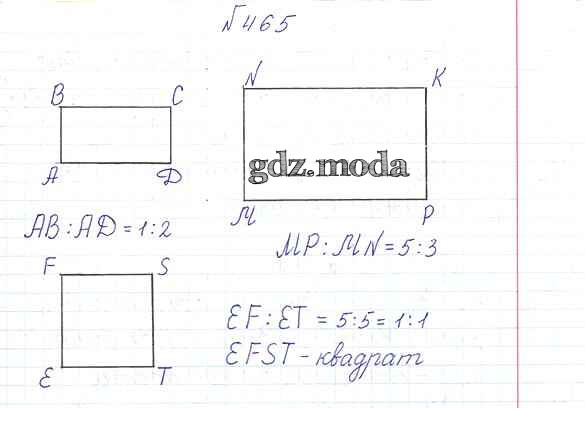 №465
B C
A D
AB:AD=1:2
N K
gdz.moda
M P
MP:MN=5:3
F S
E T
EF:ET=5:5=1:1
EFST-квадрат